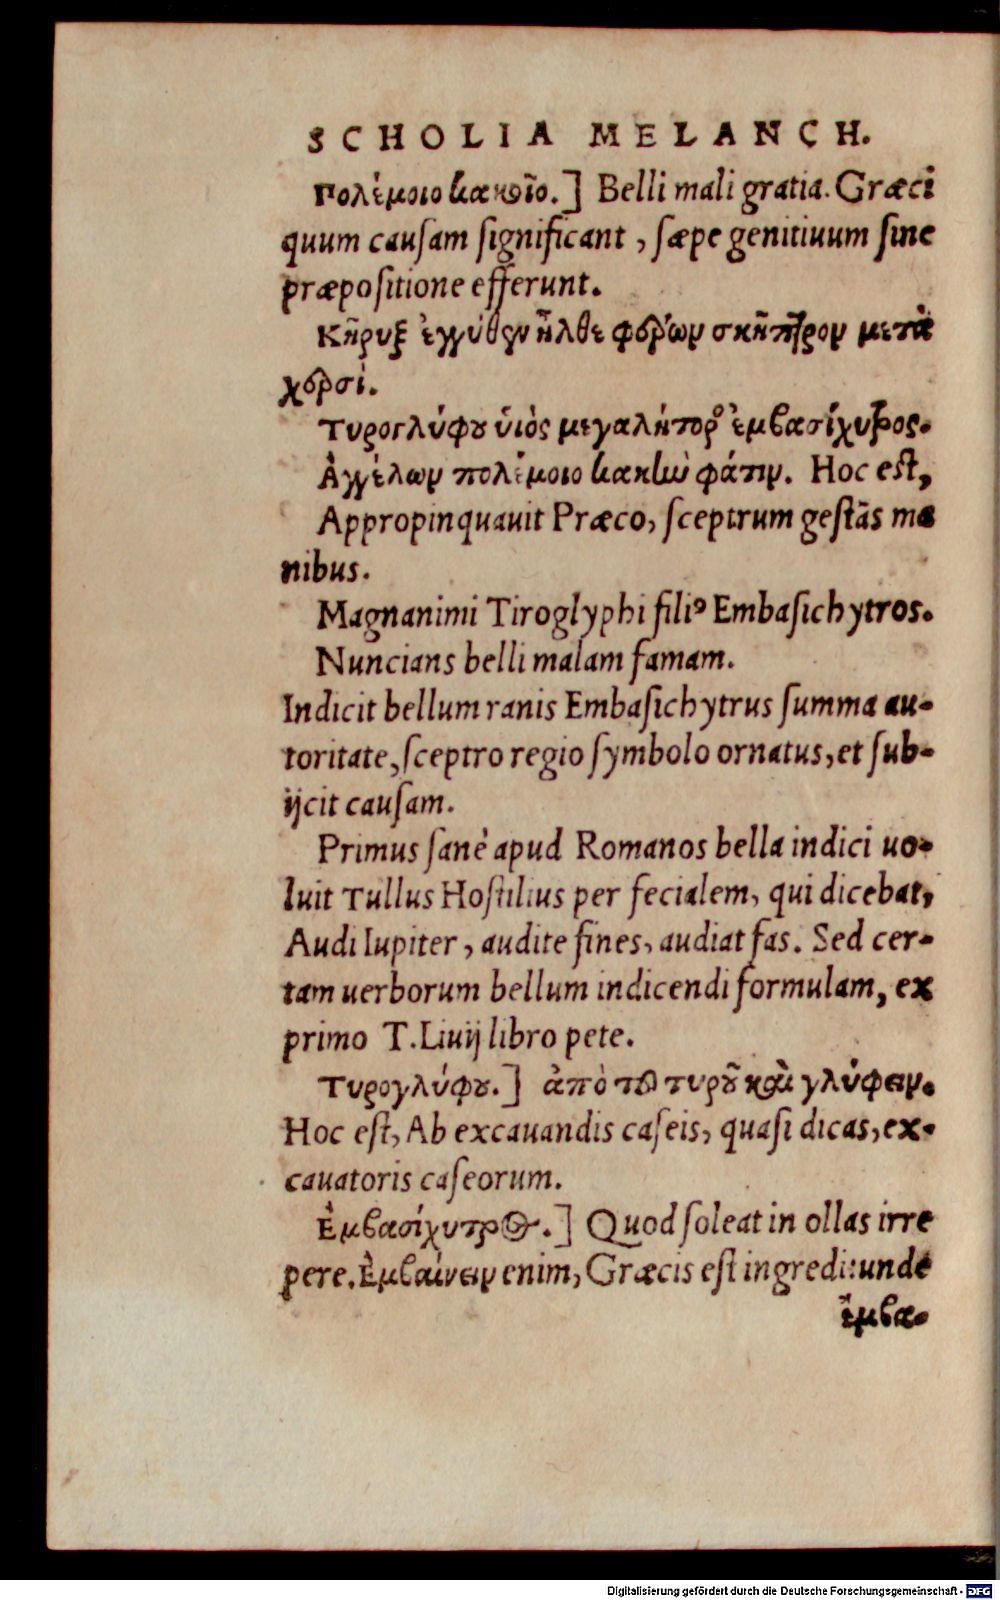 SCHOLIA MELANCH.
Πολέμοιο κακοῖο.] Belli mali gratia. Græci
quum cauſam ſignificant, ſæpe genitiuum ſine
præpoſitione efferunt.
Κῆρυξ ἐγγύθεν ἦλθε φέρων σκῆπτρον μετὰ
χερσί.
Τυρογλύφου ὑιὸς μεγαλήτορος ἐμβασίχυτρος.
Ἀγγέλων πολέμοιο κακὴν φάτιν. Hoc eſt,
Appropinquauit Præco, ſceptrum geſtãs ma
nibus.
Magnanimi Tiroglyphi filiꝰ Embaſichytros.
Nuncians belli malam famam.
Indicit bellum ranis Embaſichytrus ſumma au-
toritate, ſceptro regio ſymbolo ornatus, et ſub-
ijcit cauſam.
Primus ſanè apud Romanos bella indici uo-
luit Tullus Hoſtilius per fecialem, qui dicebat,
Audi Iupiter, audite fines, audiat fas. Sed cer-
tam uerborum bellum indicendi formulam, ex
primo T. Liuij libro pete.
Τυρογλύφου.] ἀπὸ τοῦ τυροῦ καὶ γλύφειν.
Hoc eſt, Ab excauandis caſeis, quaſi dicas, ex-
cauatoris caſeorum.
Ἐμβασίχυτρος.] Quod ſoleat in ollas irre
pere. Ἐμβαίνειν enim, Græcis eſt ingredi: unde
ἔμβα-
Digitalisierung gefördert durch die Deutsche Forschungsgemeinschaft - DFG